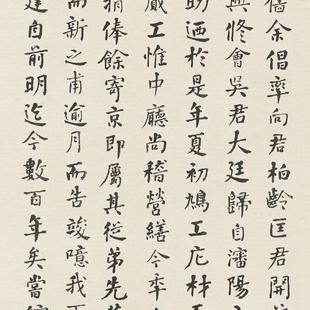 余倡率向君柏齡匡君開
興修會吳君大廷歸自瀋陽
助迺於是年夏初鳩工庀材
蕆工惟中廳尚稽營繕今季
捐俸餘寄京即屬其從弟先
而新之甫逾月而告竣噫我
建自前明迄今數百年矣當